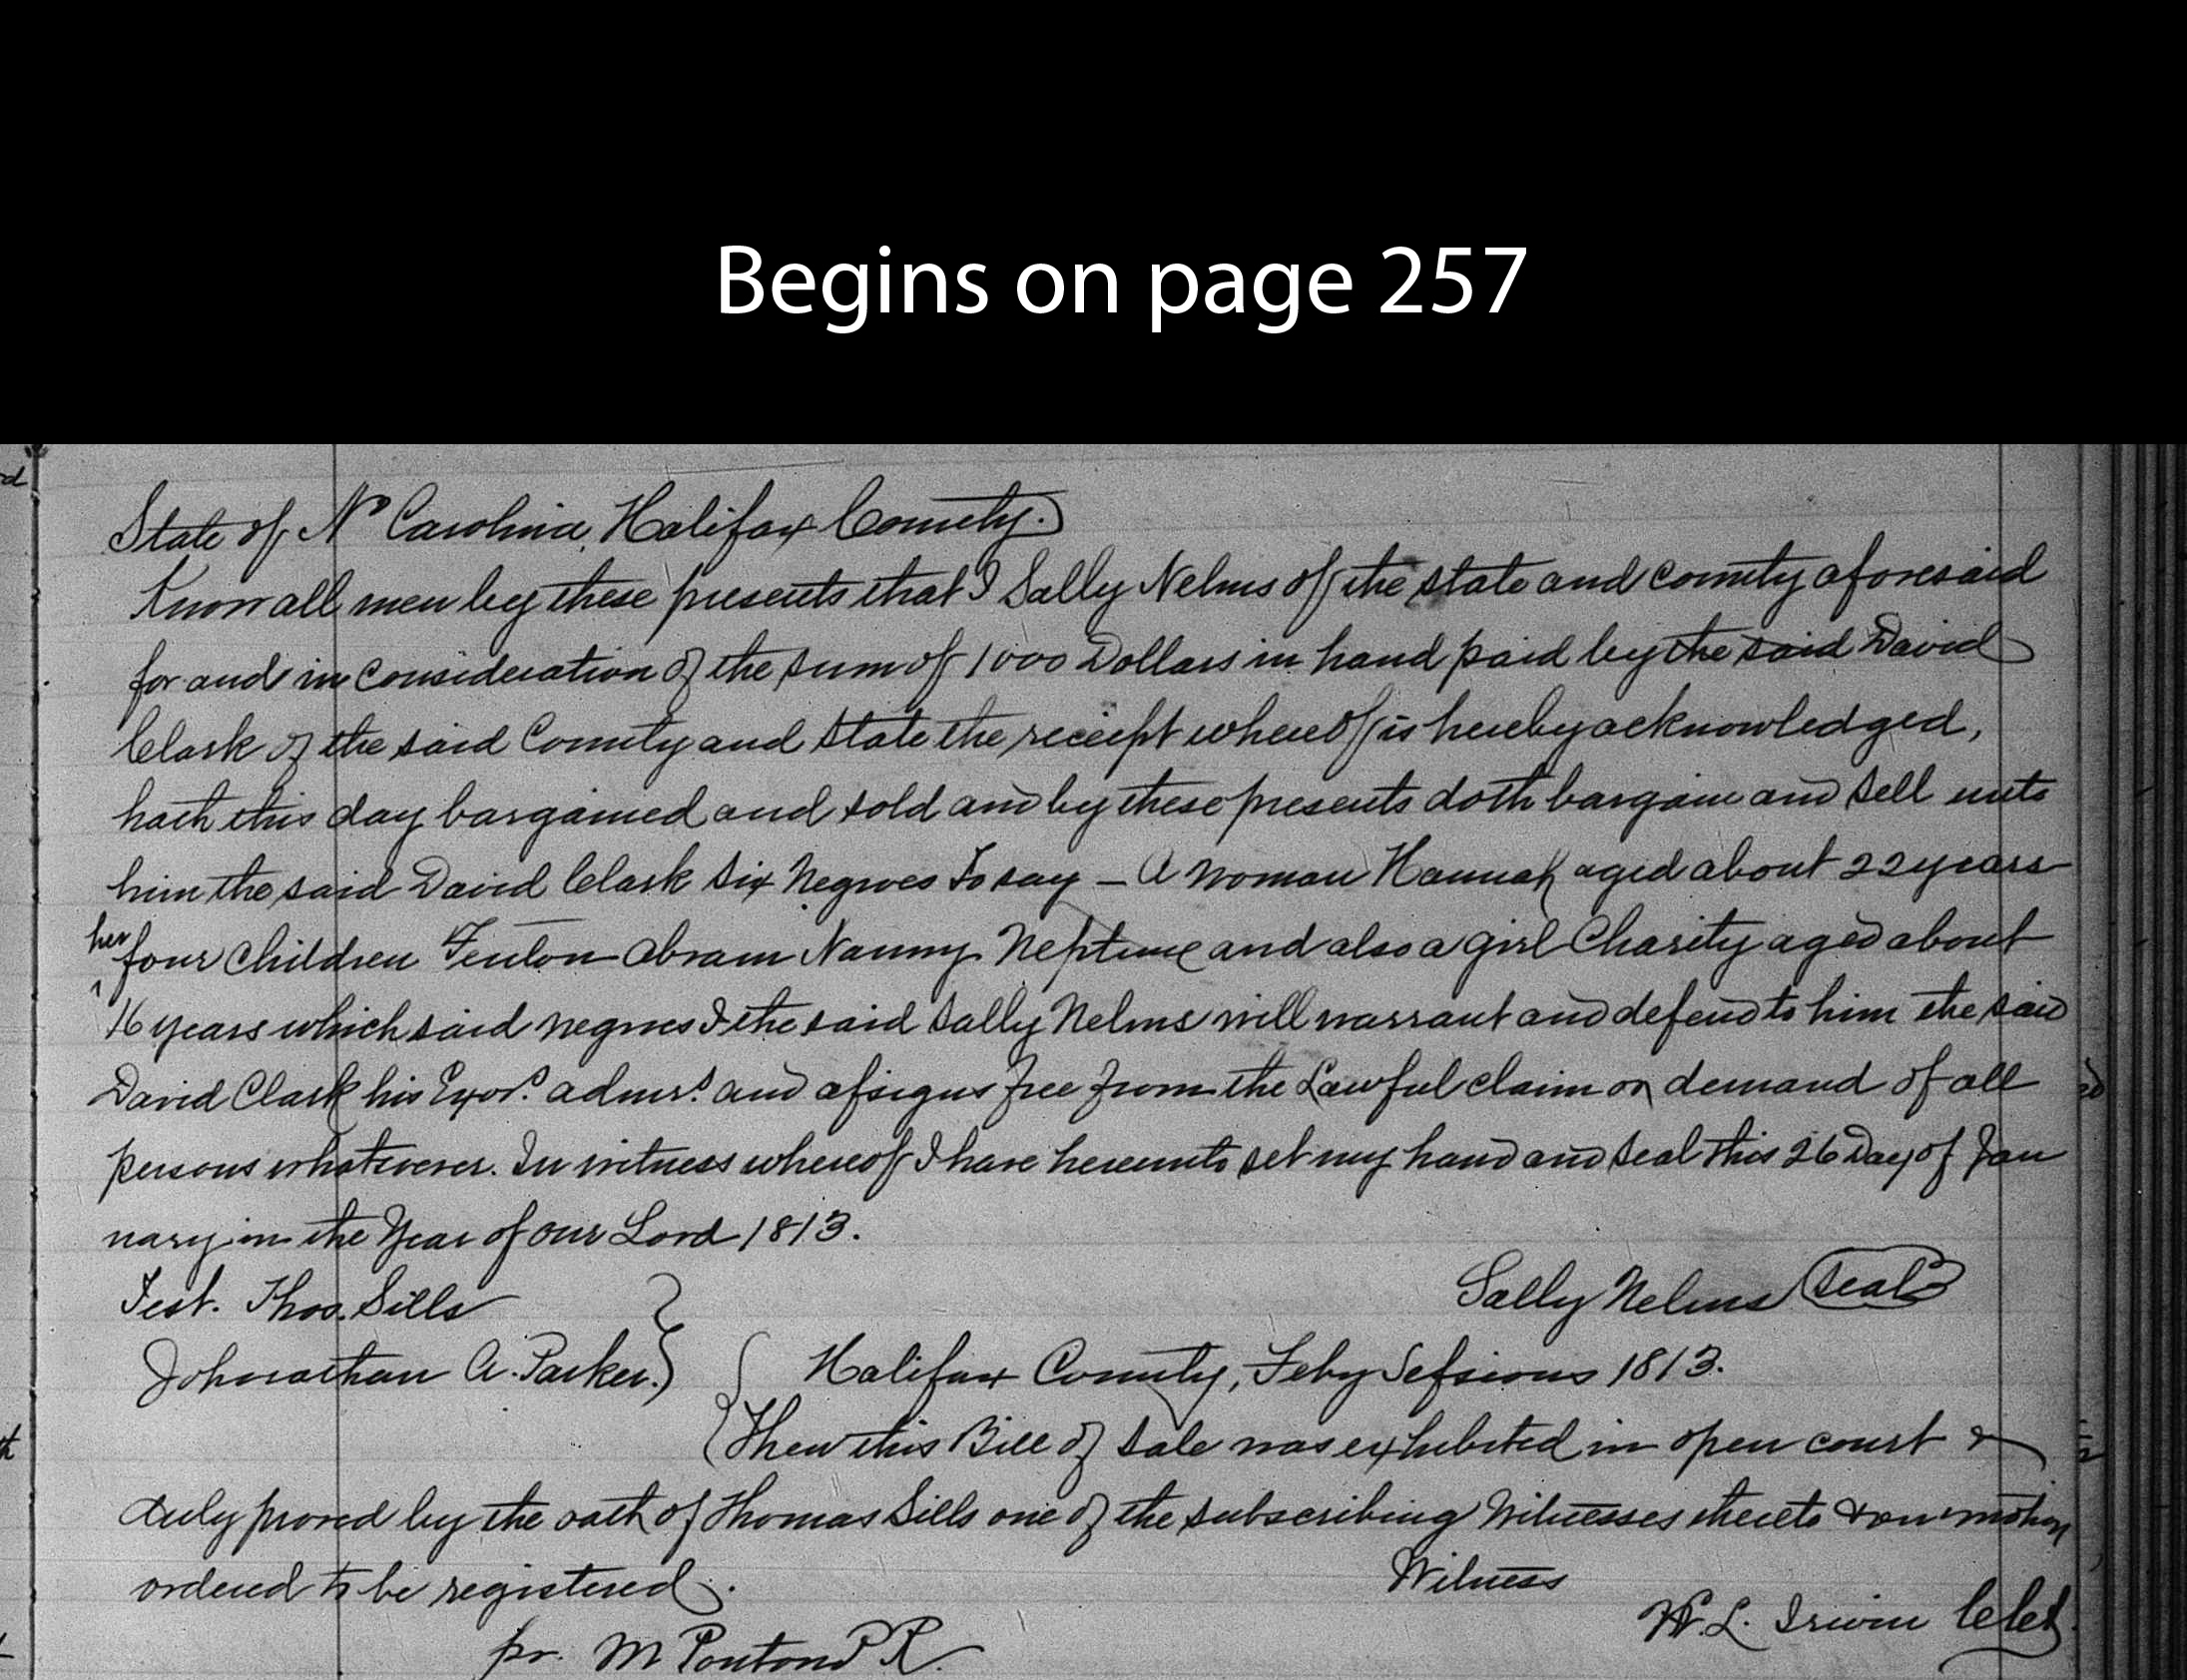 Begins on page 257
State of No Carolina, Halifax County.
Know all men by these presents that I Sally Nelms of the state and county aforesaid
for and in consideration of the sum of 1000 Dollars in hand paid by the said David
Clark of the said County and State the receipt whereof is hereby acknowledged,
hath this day bargained and sold and by these presents doth bargain and sell unto
him the said David Clark six Negroes To say – A woman Hannah aged about 22 years
her
four children Fenton Abram Nanny Neptune and also a girl Charity aged about
16 years which said negroes I the said Sally Nelms will warrant and defend to him the said
David Clark his Exors. admrs. and assigns free from the Lawful claim or demand of all
persons whatsoever. In witness whereof I have hereunto set my hand and seal this 26 Day of Jan
uary in the Year of our Lord 1813.
Test. Thos. Sills
Sally Nelms Seal
Johnathan A. Parker.
Halifax County, Feby Sessions 1813.
Then this Bill of Sale was exhibited in open court &
duly proved by the oath of Thomas Sills one of the subscribing Witnesses thereto & on motion
ordered to be registered.
Witness
W. L. Irwin
pr. M Pontond P R.